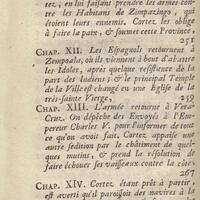 tez, en lui faisant prendre les armes con-
tre les Habitans de Zimpazingo, qui
étoient leurs ennemis. Cortez les oblige
à faire la paix, & soumet cette Province.
251
CHAP. XII. Les Espagnols retournent à
Zempoala, où ils viennent à bout d'abatre
les Idoles, après quelque résistance de la
part des Indiens; & le principal Temple
de la Ville est changé en une Eglise de la
très-sainte Vierge,
259
CHAP. XIII. L'armée retourne à Vera-
Cruz. On dépêche des Envoyés à l'Em-
pereur Charles V. pour l'informer de tout
ce qu'on avoit fait. Cortez appaise une
autre sédition par le châtiment de quel-
ques mutins, & prend la résolution de
faire échouer ses vaisseaux contre la côte.
267
CHAP. XIV. Cortez étant prêt à partir,
est averti qu'il paroissoit des navires à la